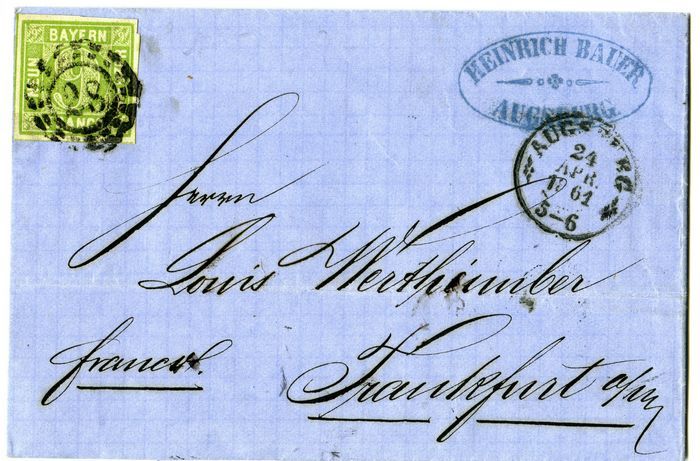 BAYERN
9
HEINRICH BAUER
AUGSBURG
AUGSBURG
24
APR.
1861
5-6
Herrn
Louis Wertheimber
franco.
Frankfurt a/m